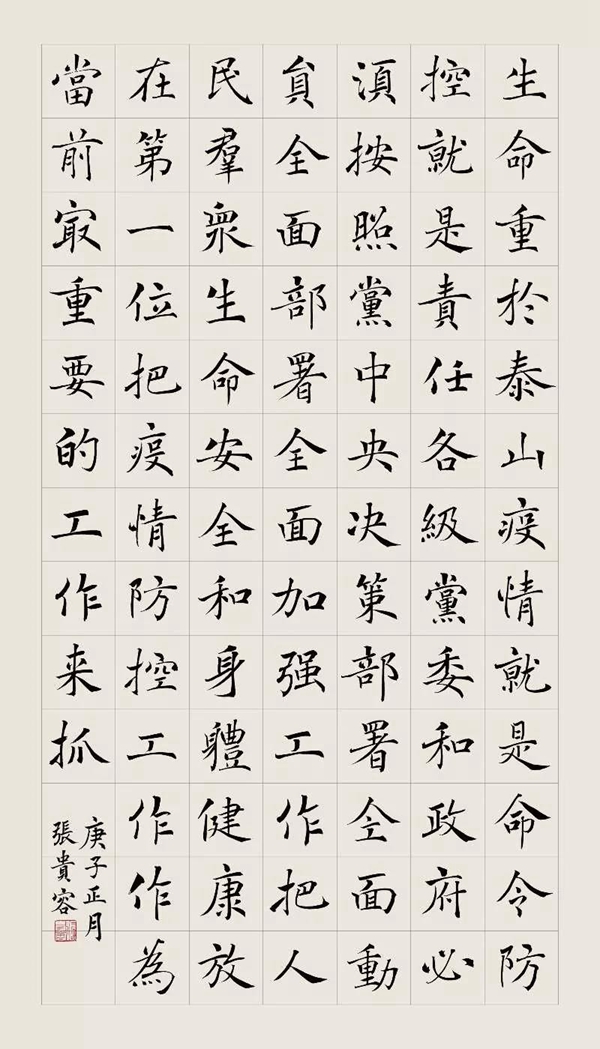 生命重於泰山疫情就是命令防
控就是責任各級黨委和政府必
湏按照黨中央决策部署全面動
員全面部署全面加强工作把人
民羣衆生命安全和身體健康放
在第一位把疫情防控工作作為
當前㝡重要的工作来抓
庚子正月
張貴容